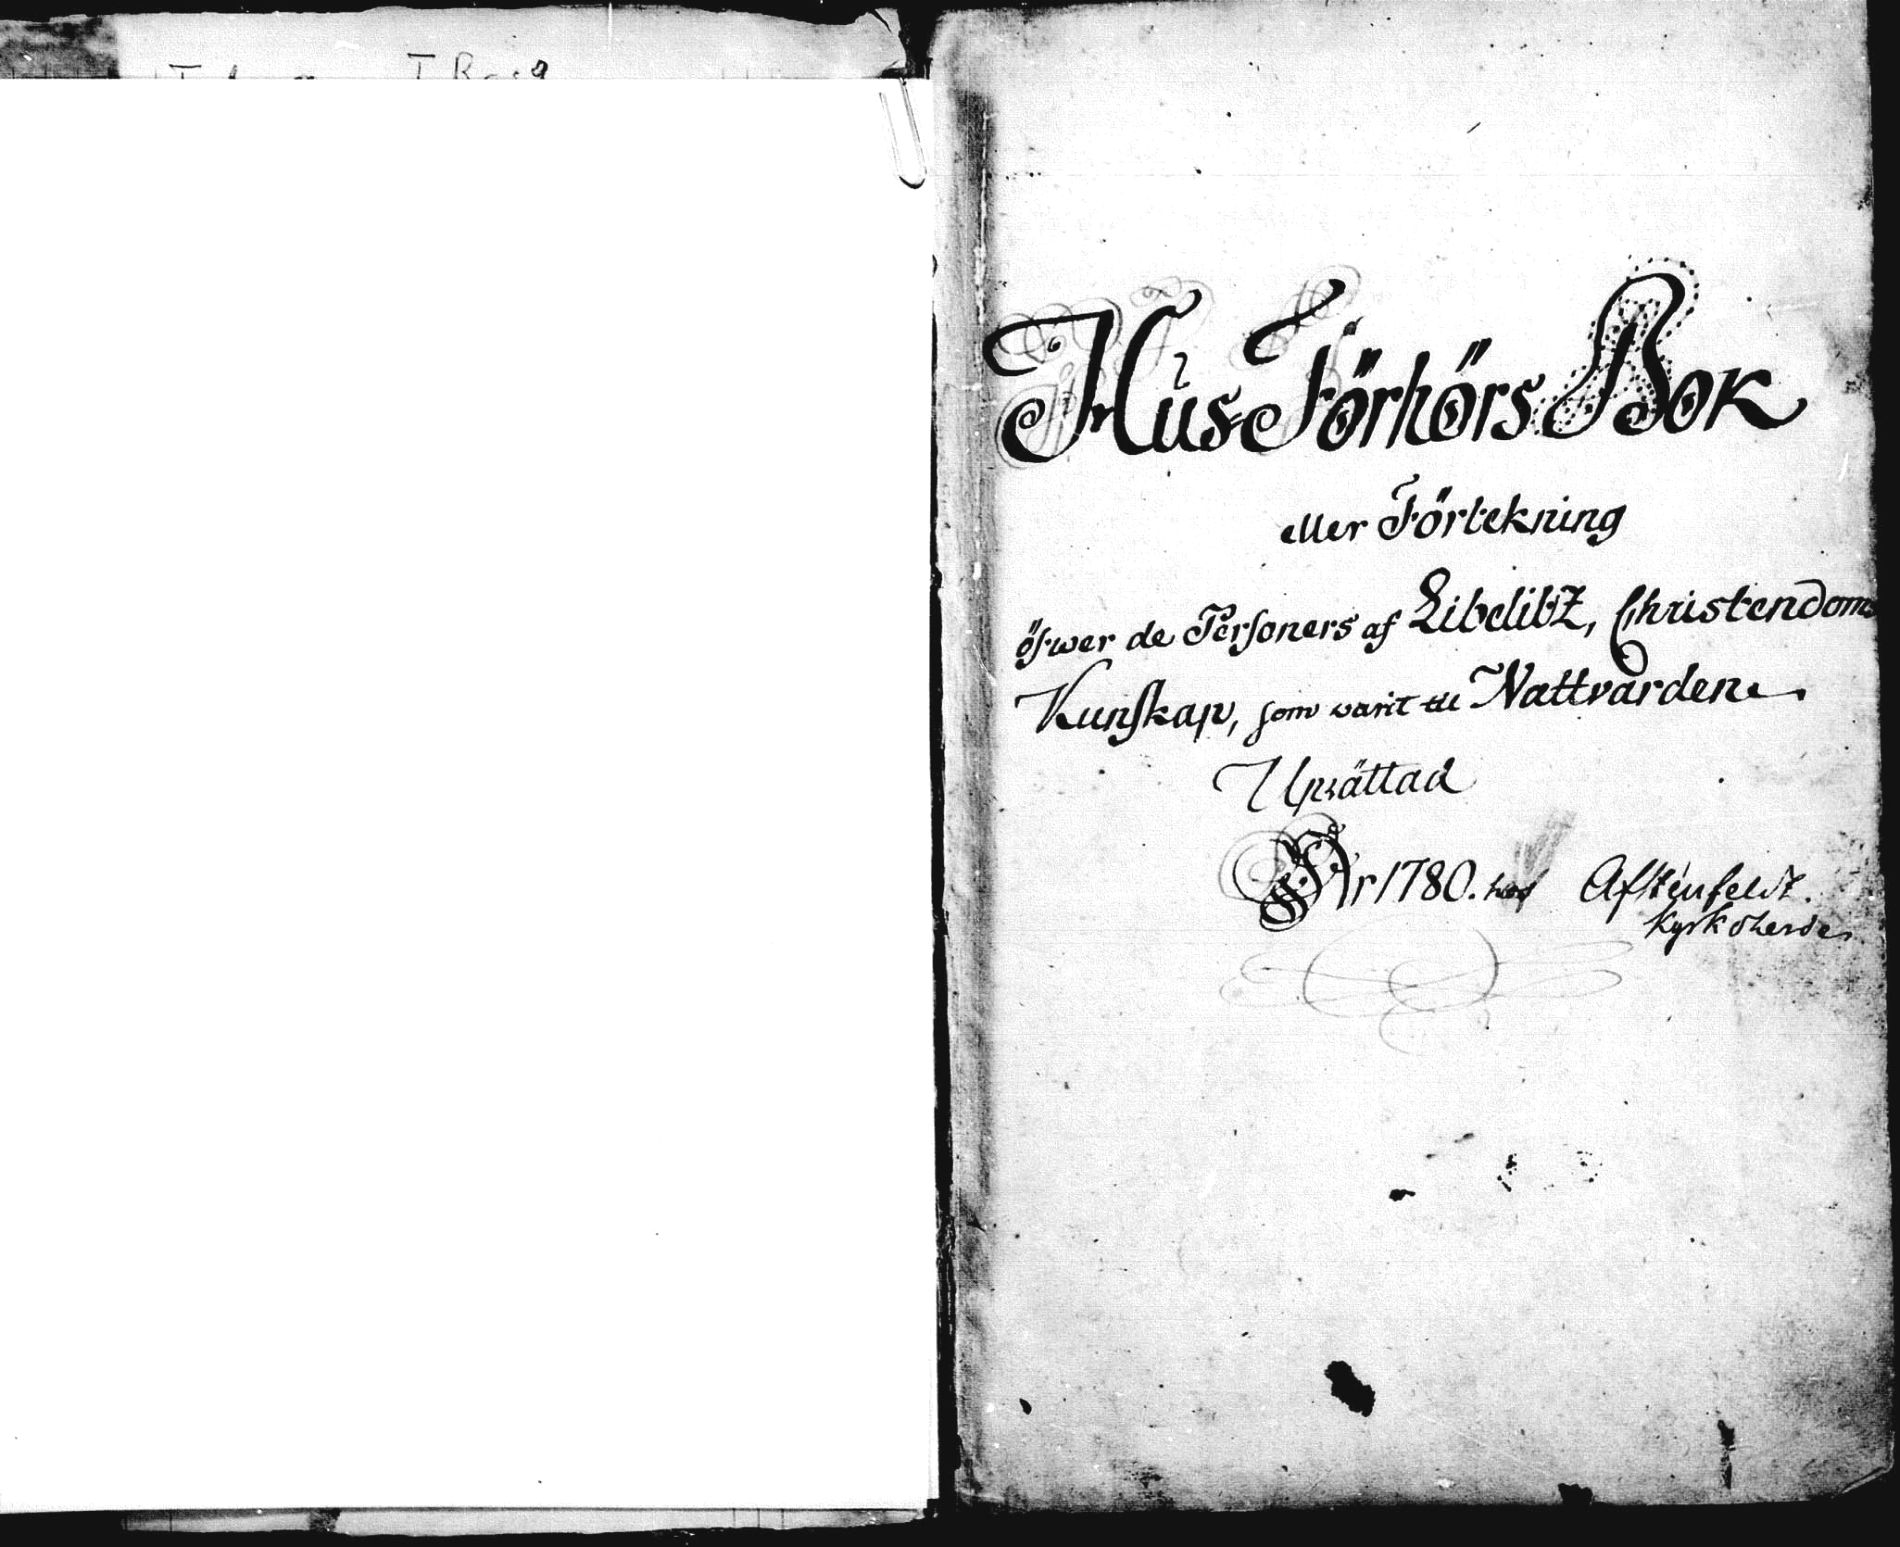 Hus Förhörs Bok
eller Förtekning
öfwer de Personers af Libelitz, Christendoms
Kunskap, som varit til Nattvarden.
Uprättad
År 1780. hos Afstenfeldt.
Kyrkoherde